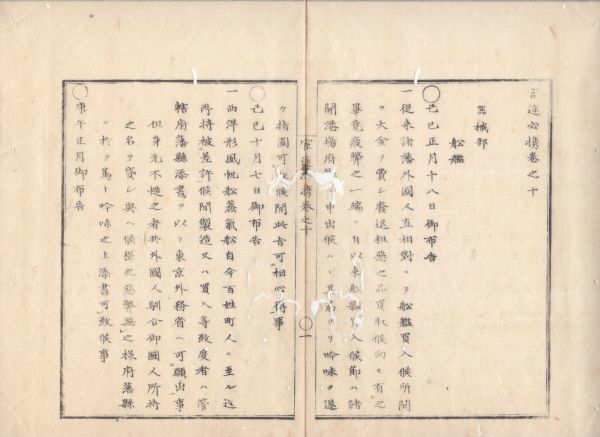 官途必携巻之十
器械部
船艦
○己巳正月十八日御布告
一従来諸藩外國人直相對ニテ船艦買入候所間
々大金ヲ費シ廢退粗惡之品買取候向モ有之
畢竟疲弊之一端 以来船艦買入候節ハ諸
開港場府 申出候ハヽ其筋 リ吟味ヲ遂
ケ指圖可 候間此旨可相心得事
○己巳十月七日御布告
一西洋形風帆船蒸氣船自今百姓町人ニ至ル迄
所持被差許候間製造又ハ買入等致度者ハ管
轄府藩縣添書ヲ以テ東京外務省ヘ可願出事
但身元不慥之者共外國人馴合御國人所持
之名ヲ貸シ與ヘ候様之惡弊無之様府藩縣
ニ於テ篤ト吟味之上添書可致候事
○庚午正月御布告
官途必携巻之十
○一